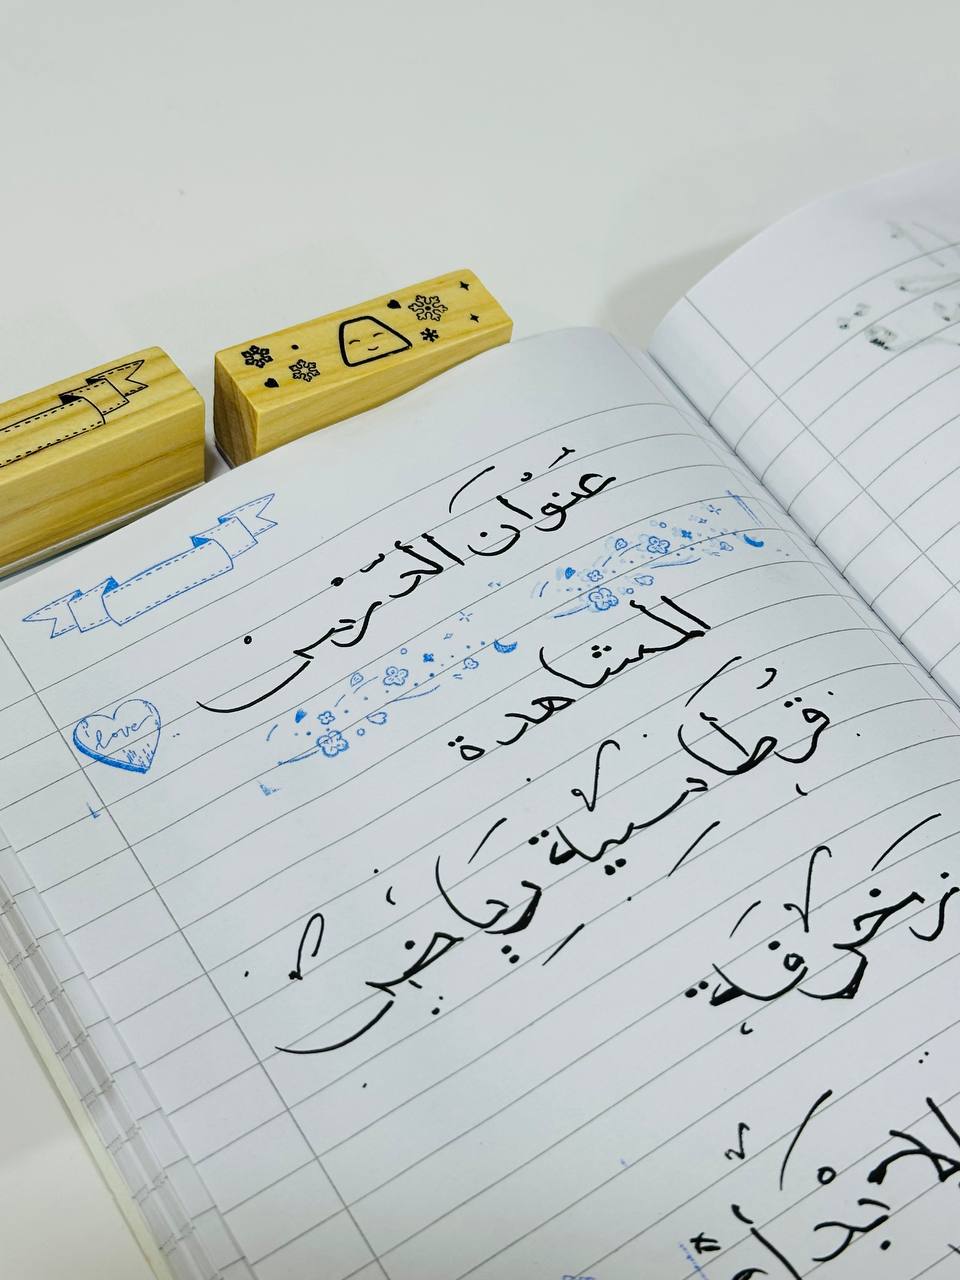 عنوان الدرس
love
المشاهدة
قرطاسية رياض
زخرفة